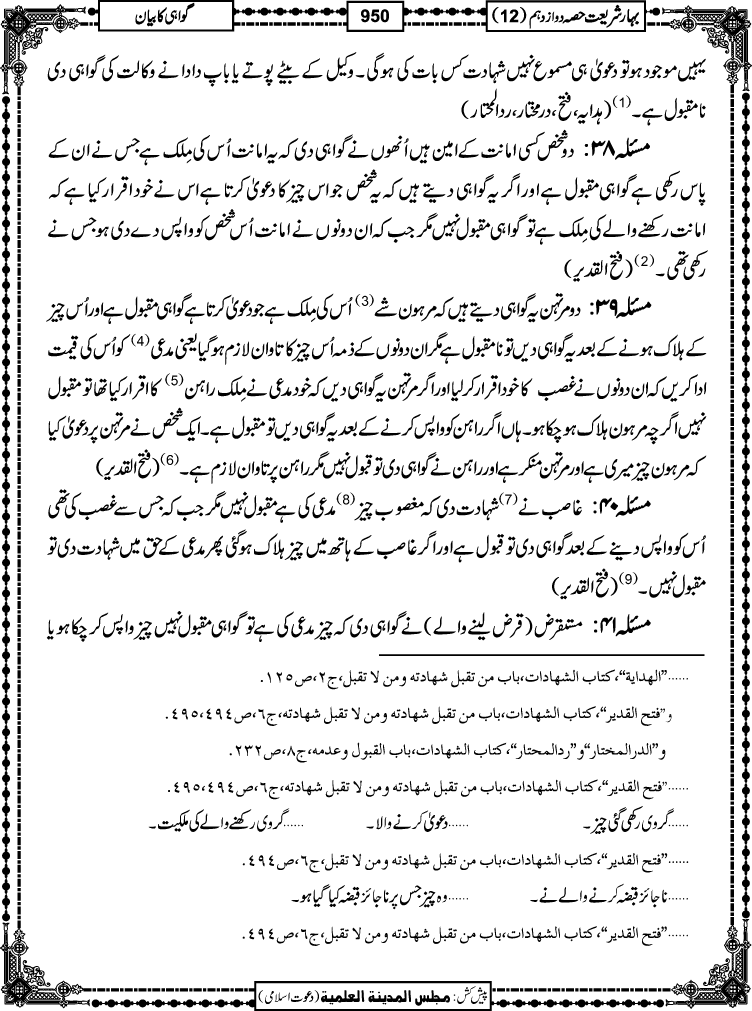 بہارِ شریعت حصہ دوازدہم (12)
950
گواہی کا بیان
یہیں موجود ہو تو دعویٰ ہی مسموع نہیں شہادت کس بات کی ہوگی۔ وکیل کے بیٹے پوتے یا باپ دادا نے وکالت کی گواہی دی
نامقبول ہے۔(1) (ہدایہ، فتح، درمختار، ردالمحتار)
مسئلہ ۳۸: دو شخص کسی امانت کے امین ہیں اُنھوں نے گواہی دی کہ یہ امانت اُس کی مِلک ہے جس نے ان کے
پاس رکھی ہے گواہی مقبول ہے اور اگر یہ گواہی دیتے ہیں کہ یہ شخص جو اس چیز کا دعویٰ کرتا ہے اس نے خود اقرار کیا ہے کہ
امانت رکھنے والے کی مِلک ہے تو گواہی مقبول نہیں مگر جب کہ ان دونوں نے امانت اُس شخص کو واپس دے دی ہو جس نے
رکھی تھی۔(2) (فتح القدیر)
مسئلہ ۳۹: دو مرتہن یہ گواہی دیتے ہیں کہ مرہون شے(3) اُس کی مِلک ہے جو دعویٰ کرتا ہے گواہی مقبول ہے اور اُس چیز
کے ہلاک ہونے کے بعد یہ گواہی دیں تو نامقبول ہے مگر ان دونوں کے ذمہ اُس چیز کا تاوان لازم ہوگیا یعنی مدعی(4) کو اُس کی قیمت
ادا کریں کہ ان دونوں نے غصب کا خود اقرار کرلیا اور اگر مرتہن یہ گواہی دیں کہ خود مدعی نے مِلک راہن(5) کا اقرار کیا تھا تو مقبول
نہیں اگرچہ مرہون ہلاک ہوچکا ہو۔ ہاں اگر راہن کو واپس کرنے کے بعد یہ گواہی دیں تو مقبول ہے۔ ایک شخص نے مرتہن پر دعویٰ کیا
کہ مرہون چیز میری ہے اور مرتہن منکر ہے اور راہن نے گواہی دی تو قبول نہیں مگر راہن پر تاوان لازم ہے۔(6) (فتح القدیر)
مسئلہ ۴۰: غاصب نے(7) شہادت دی کہ مغصوب چیز(8) مدعی کی ہے مقبول نہیں مگر جب کہ جس سے غصب کی تھی
اُس کو واپس دینے کے بعد گواہی دی تو قبول ہے اور اگر غاصب کے ہاتھ میں چیز ہلاک ہوگئی پھر مدعی کے حق میں شہادت دی تو
مقبول نہیں۔(9) (فتح القدیر)
مسئلہ ۴۱: مستقرض (قرض لینے والے) نے گواہی دی کہ چیز مدعی کی ہے تو گواہی مقبول نہیں چیز واپس کرچکا ہو یا
......"الهداية"، کتاب الشهادات، باب من تقبل شهادته ومن لا تقبل، ج٢، ص١٢٥.
و"فتح القدير"، کتاب الشهادات، باب من تقبل شهادته ومن لا تقبل شهادته، ج٦، ص٤٩٤، ٤٩٥.
و"الدرالمختار" و"ردالمحتار"، کتاب الشهادات، باب القبول وعدمه، ج٨، ص٢٣٢.
......"فتح القدير"، کتاب الشهادات، باب من تقبل شهادته ومن لا تقبل شهادته، ج٦، ص٤٩٤، ٤٩٥.
......گروی رکھی گئی چیز۔ ......دعویٰ کرنے والا۔ ......گروی رکھنے والے کی ملکیت۔
......"فتح القدير"، کتاب الشهادات، باب من تقبل شهادته ومن لا تقبل، ج٦، ص٤٩٤.
......ناجائز قبضہ کرنے والے نے۔ ......وہ چیز جس پر ناجائز قبضہ کیا گیا ہو۔
......"فتح القدير"، کتاب الشهادات، باب من تقبل شهادته ومن لا تقبل، ج٦، ص٤٩٤.
پیش کش: مجلس المدینة العلمیة (دعوت اسلامی)